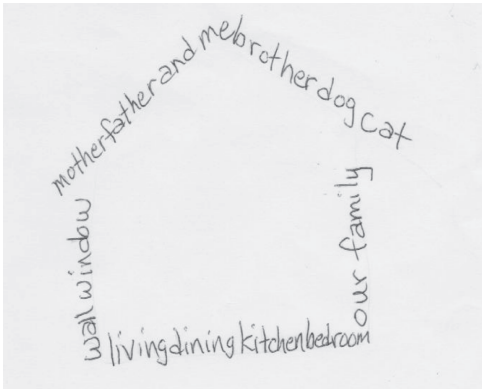 motherfatherand mebrotherdog cat
wall window
our family
livingdiningkitchenbedroom